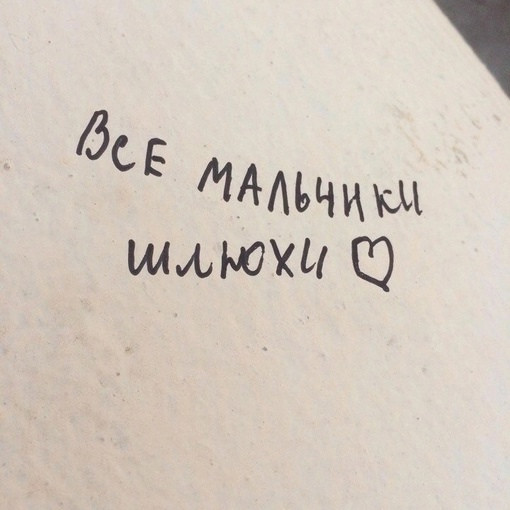 Все мальчики
шлюхи ♡